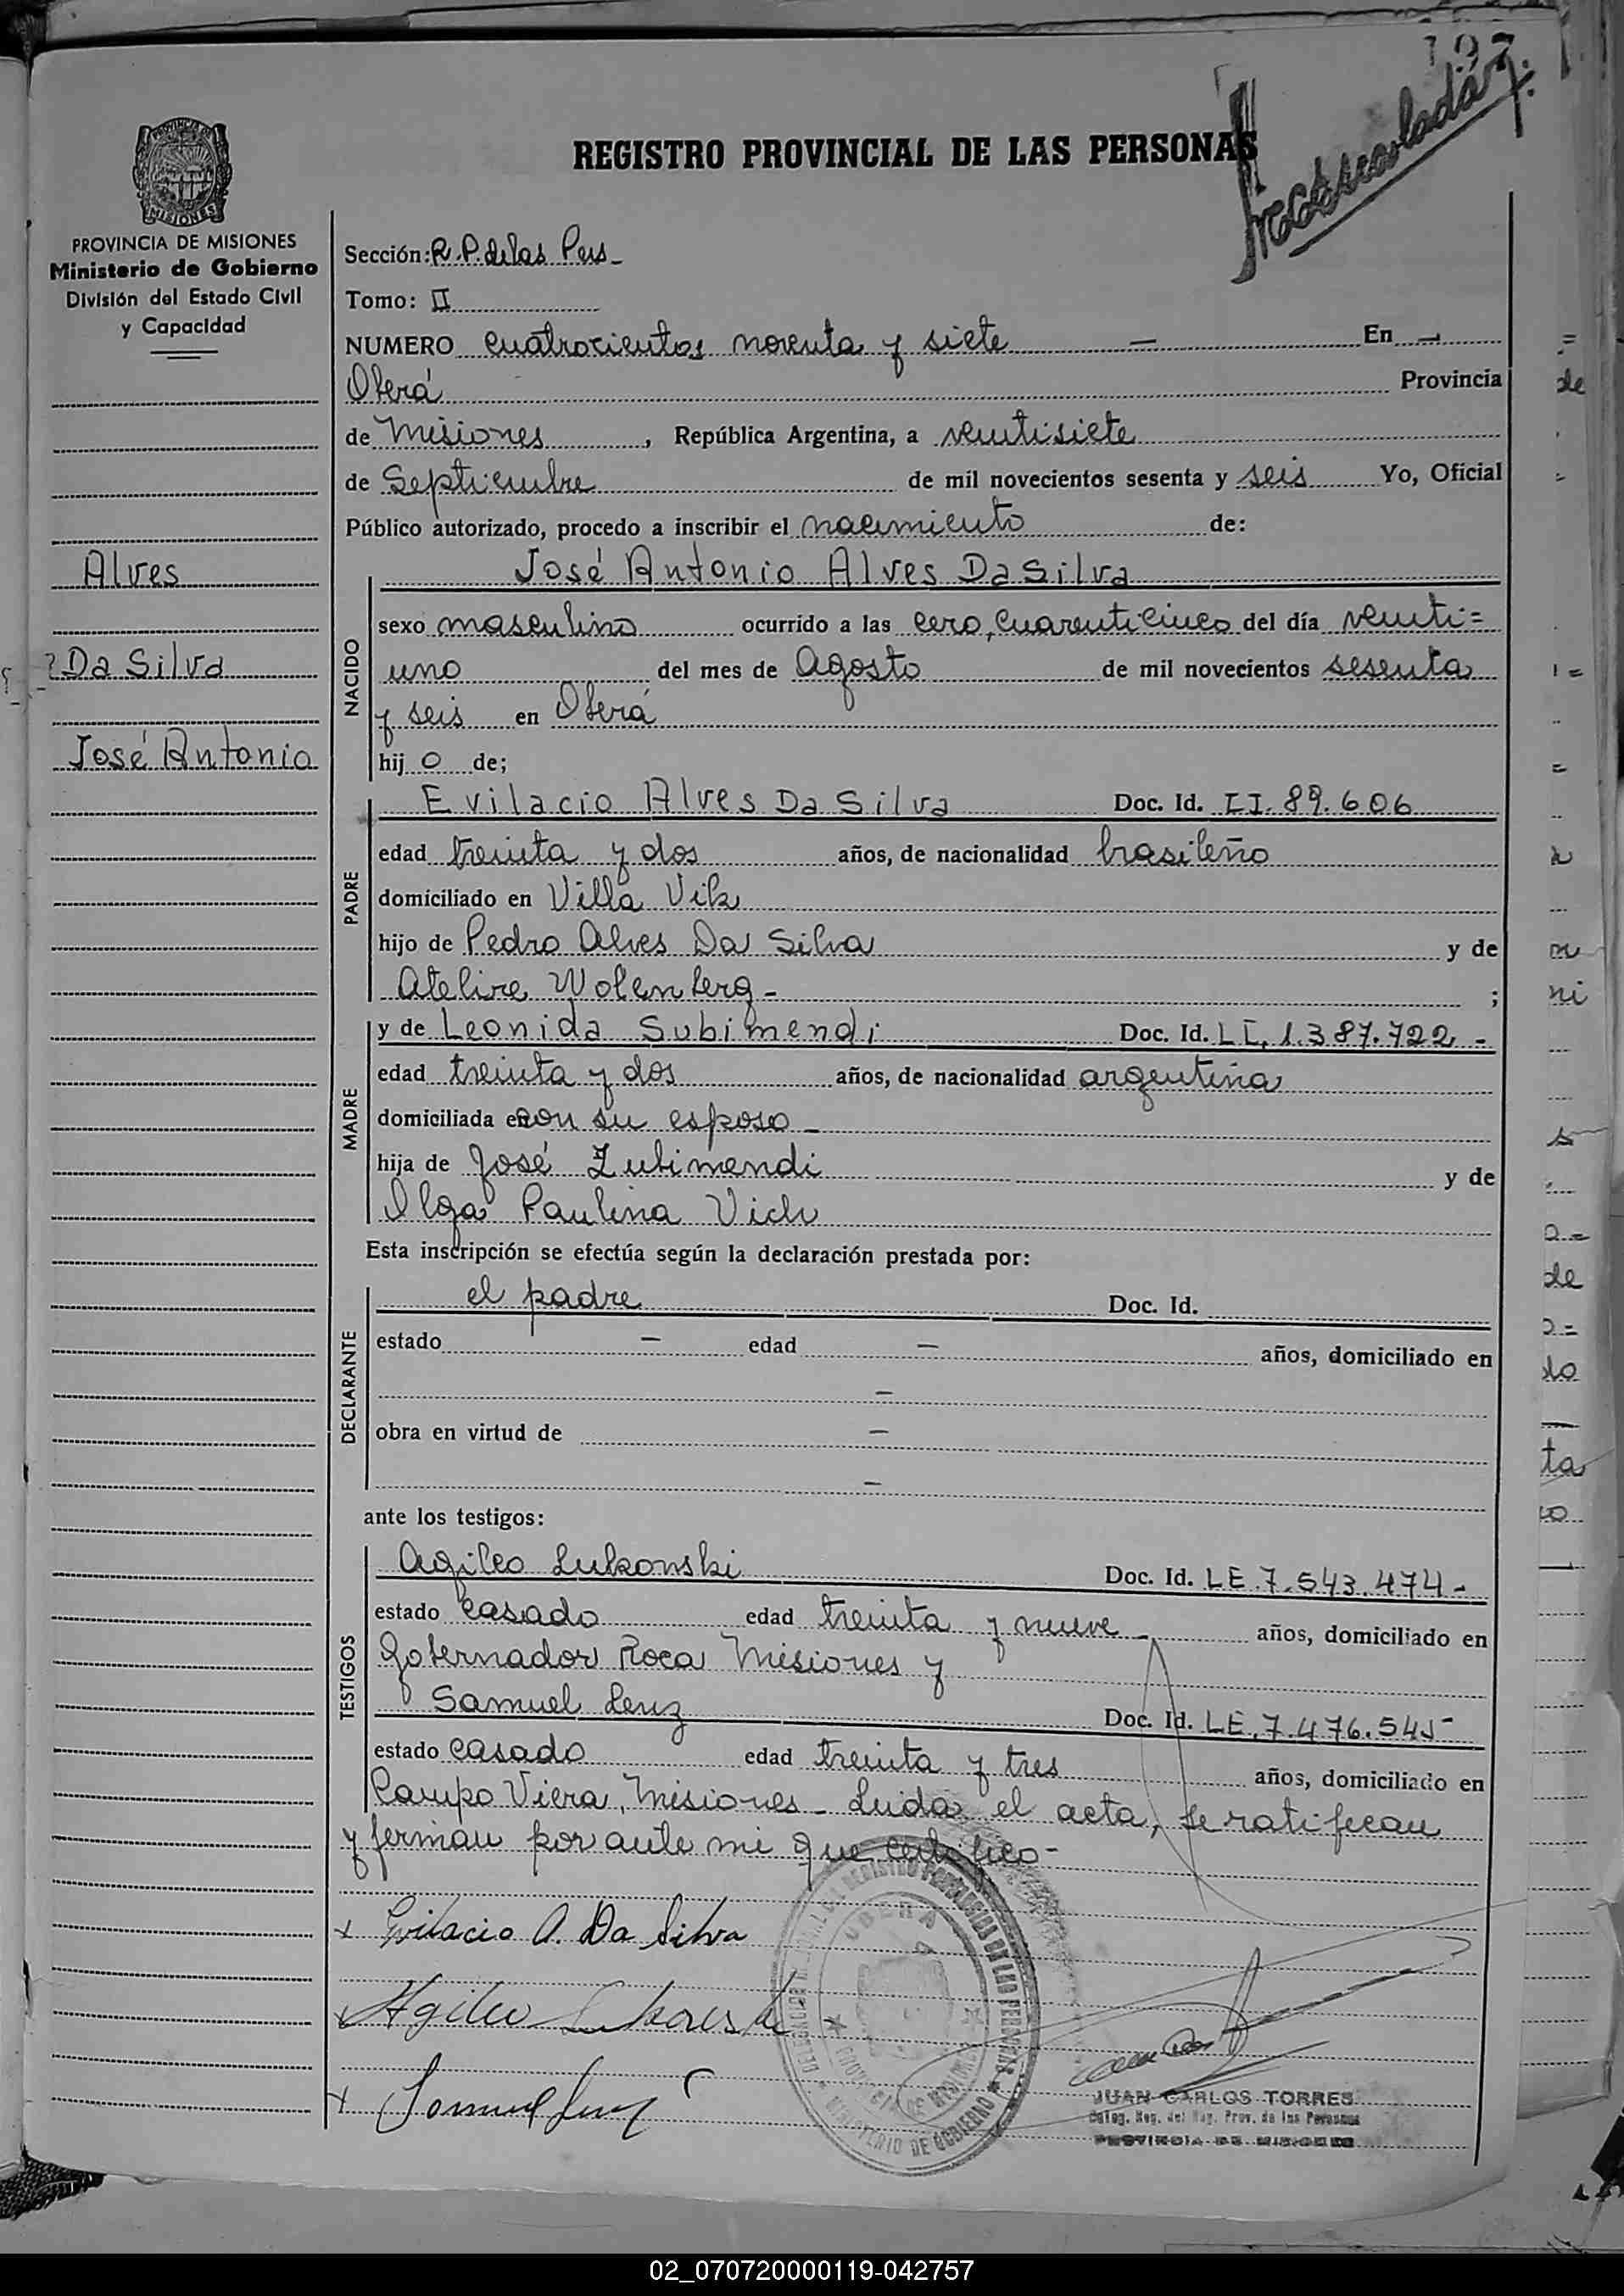 197
REGISTRO PROVINCIAL DE LAS PERSONAS
MISIONES
PROVINCIA DE MISIONES
Ministerio de Gobierno
División del Estado Civil
y Capacidad
Alves
Da Silva
José Antonio
Sección: R.P. de las Pers-
Tomo: II
NUMERO cuatrocientos noventa y siete — En —
Oberá Provincia
de Misiones, República Argentina, a veintisiete
de Septiembre de mil novecientos sesenta y seis Yo, Oficial
Público autorizado, procedo a inscribir el nacimiento de:
José Antonio Alves Da Silva
NACIDO
sexo masculino ocurrido a las cero, cuarenticinco del día veinti=
uno del mes de Agosto de mil novecientos sesenta
y seis en Oberá
hij o de;
PADRE
Evilacio Alves Da Silva Doc. Id. II. 89.606
edad treinta y dos años, de nacionalidad brasileño
domiciliado en Villa Vik
hijo de Pedro Alves Da Silva y de
Atelire Wolenberg - ;
MADRE
y de Leonida Subimendi Doc. Id. LI. 1.387.722 -
edad treinta y dos años, de nacionalidad argentina
domiciliada en con su esposo -
hija de José Zubimendi y de
Olga Paulina Vich
Esta inscripción se efectúa según la declaración prestada por:
DECLARANTE
el padre Doc. Id.
estado — edad — años, domiciliado en
—
obra en virtud de —
—
ante los testigos:
TESTIGOS
Agileo Lukonski Doc. Id. LE 7.543.474 -
estado casado edad treinta y nueve - años, domiciliado en
Gobernador Roca Misiones y
Samuel Lenz Doc. Id. LE. 7.476.545 -
estado casado edad treinta y tres años, domiciliado en
Campo Viera, Misiones - Leida el acta, se ratifican
y firman por ante mi que certifico -
x Evilacio A. Da Silva
x Agileo
x Samuel Lenz
OBERA
MINISTERIO DE GOBIERNO
JUAN CARLOS TORRES
Deleg. Reg. del Reg. Prov. de las Personas
PROVINCIA DE MISIONES
02_070720000119-042757